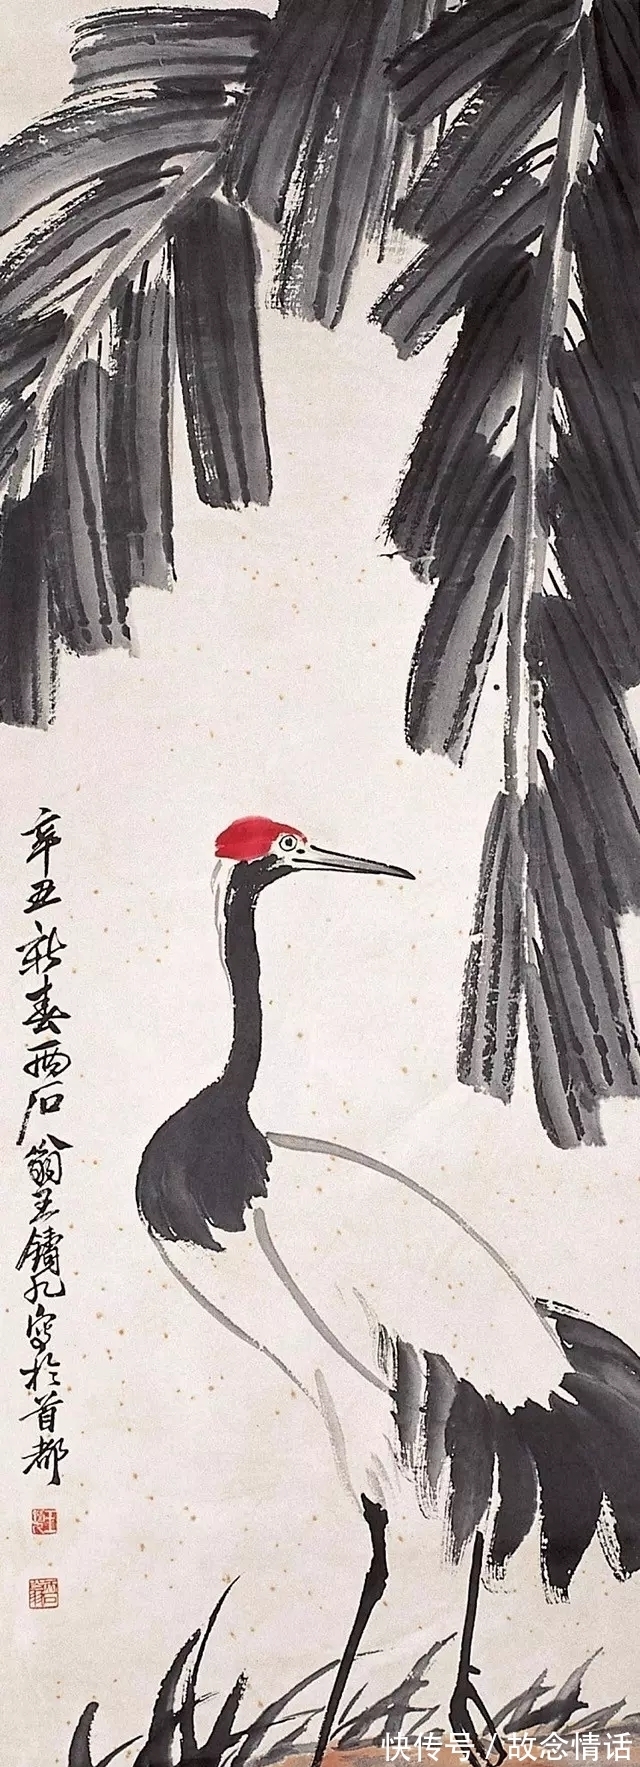 辛丑新春两石翁王鑄九写於首都
快传号 / 故念情话